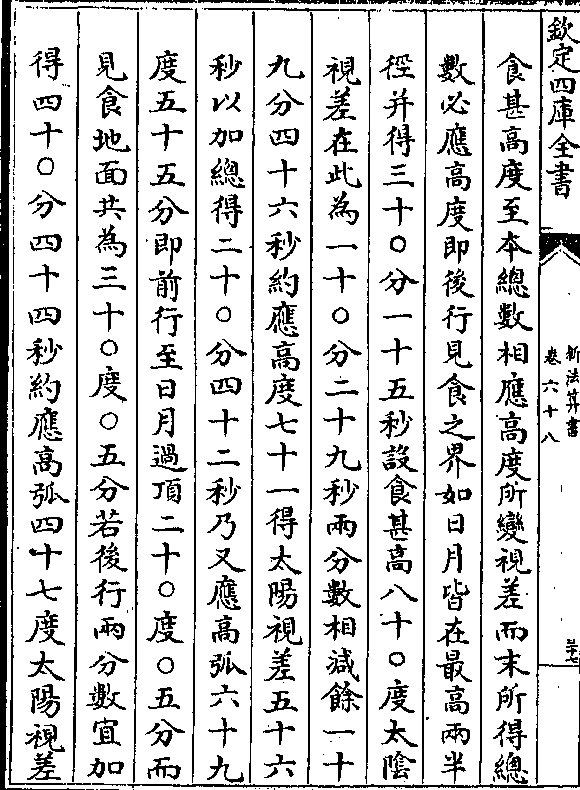 欽定四庫全書
新法算書
卷六十八
三十七
食甚高度至本總數相應高度所變視差而末所得總
數必應高度即後行見食之界如日月皆在最高兩半
徑并得三十〇分一十五秒設食甚高八十〇度太陰
視差在此為一十〇分二十九秒兩分數相減餘一十
九分四十六秒約應高度七十一得太陽視差五十六
秒以加總得二十〇分四十二秒乃又應高弧六十九
度五十五分即前行至日月過頂二十〇度〇五分而
見食地面共為三十〇度〇五分若後行兩分數宜加
得四十〇分四十四秒約應高弧四十七度太陽視差